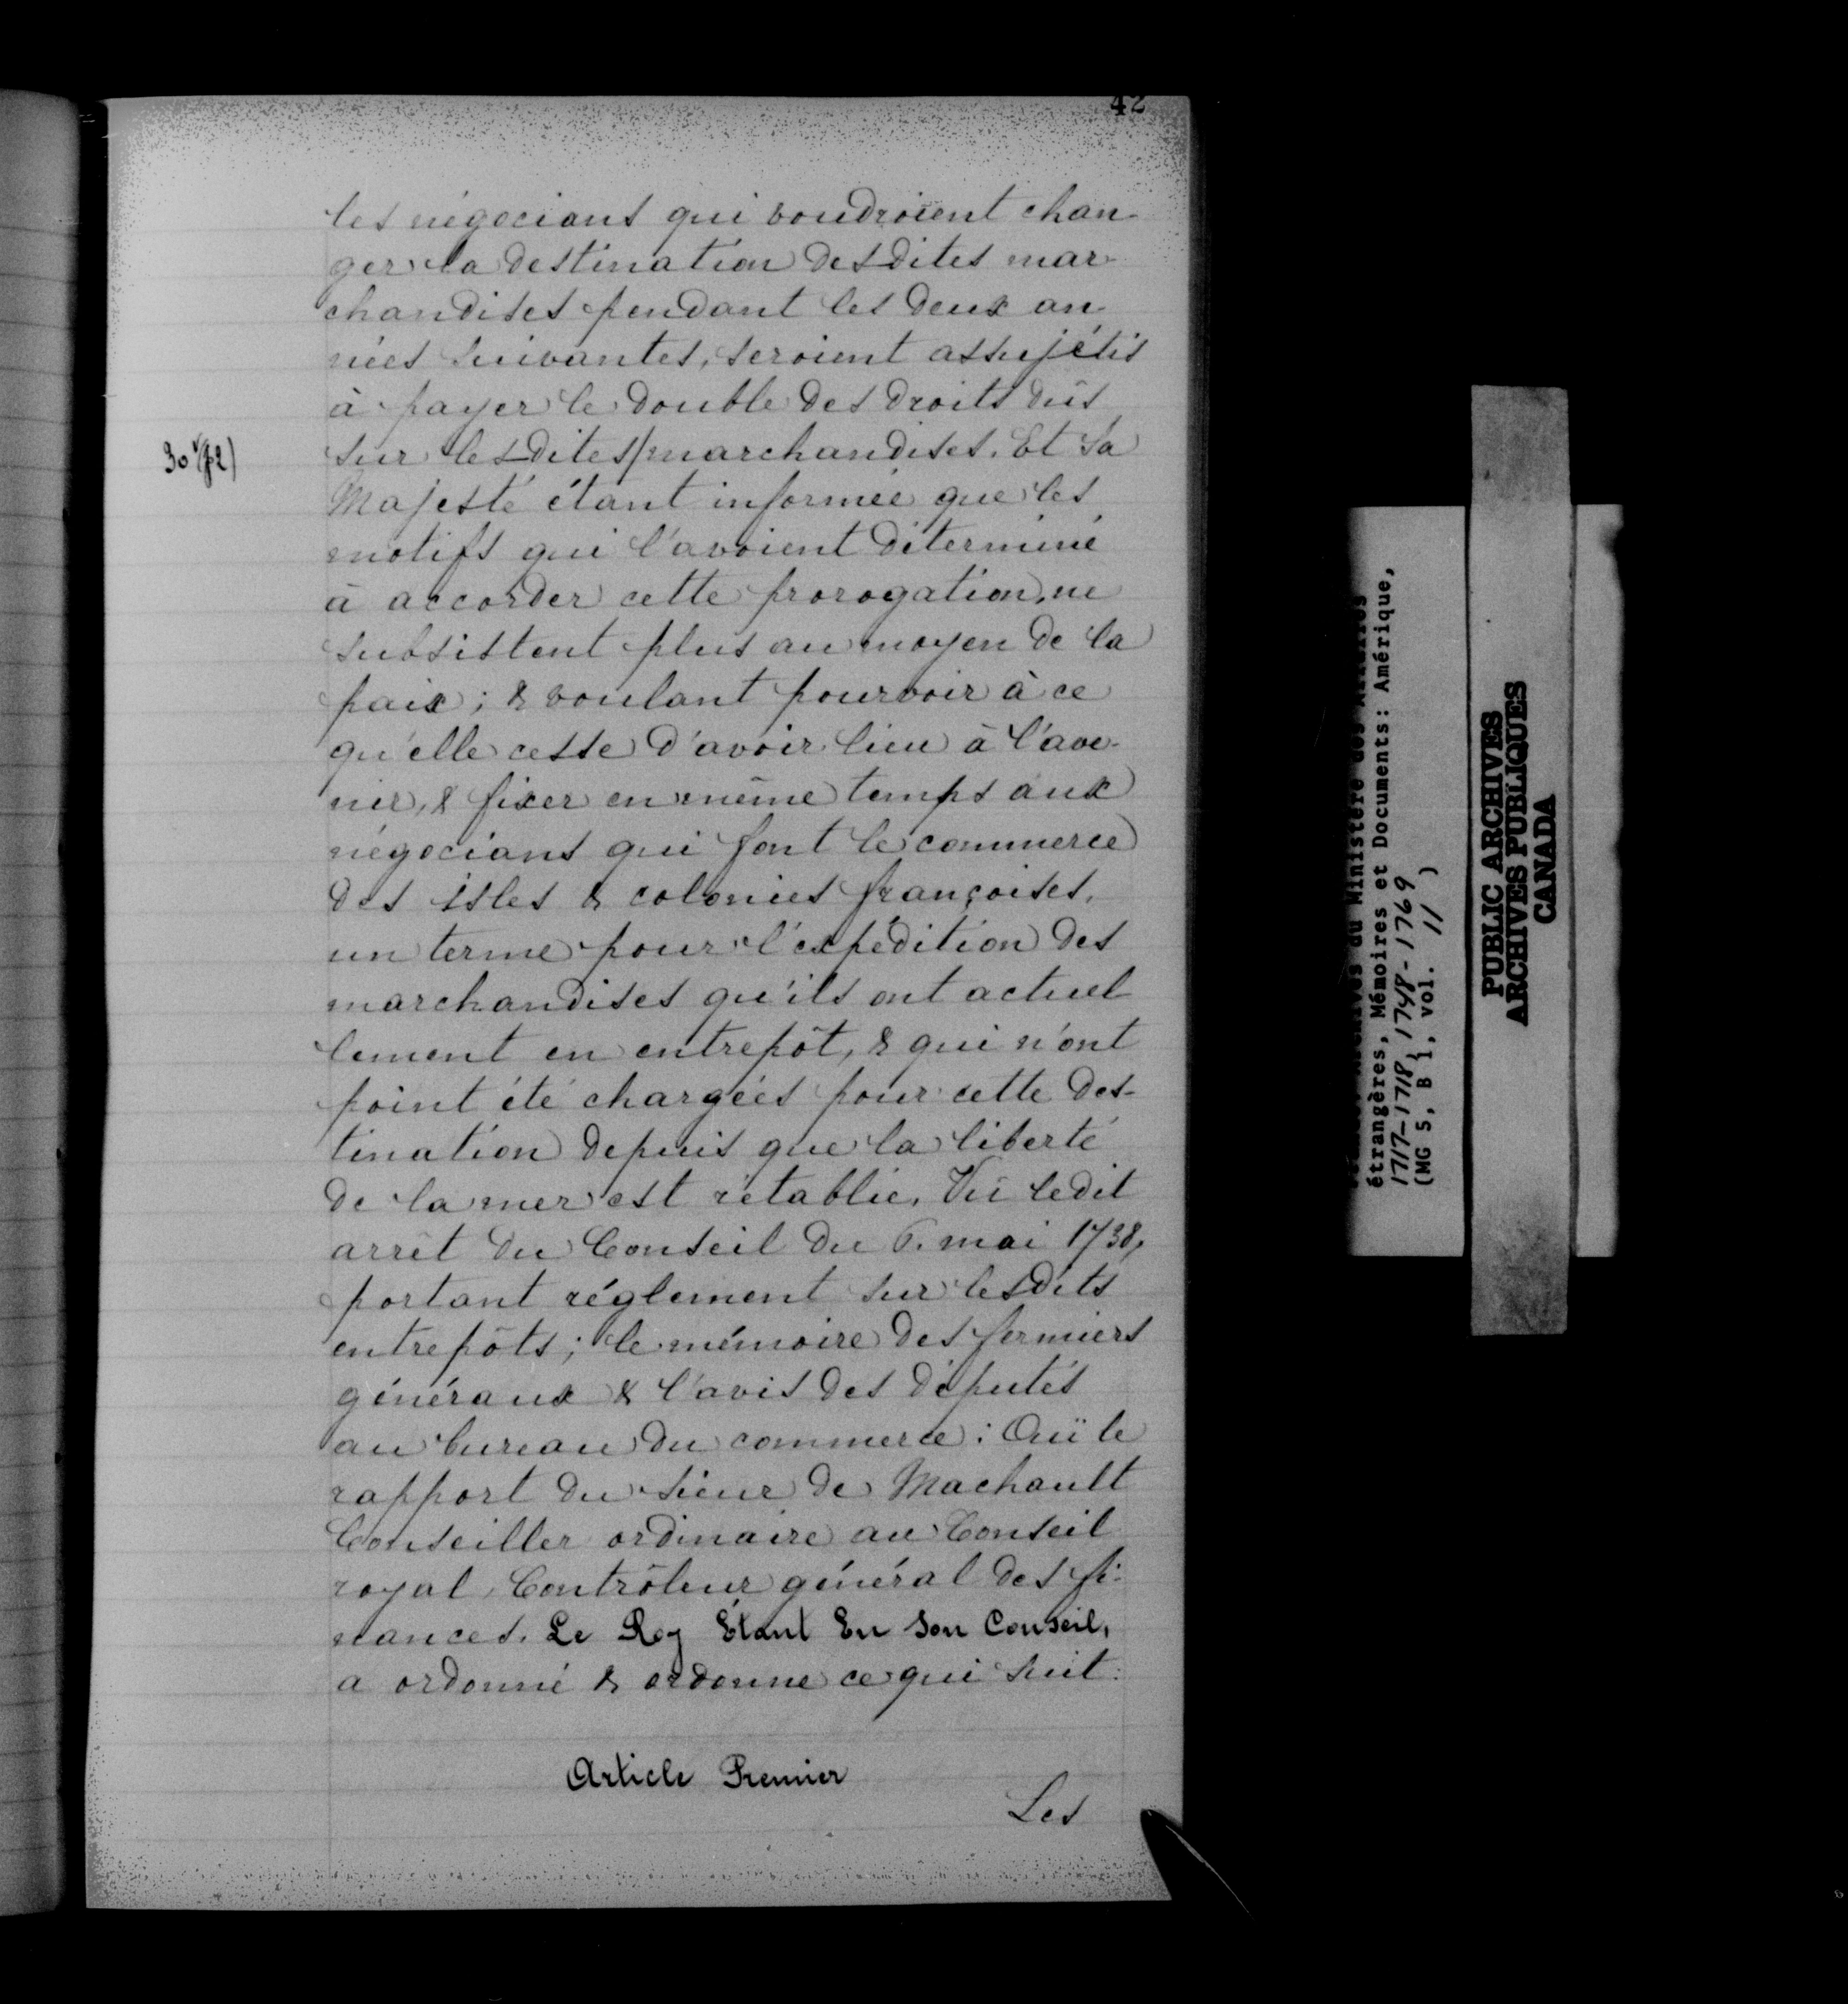 42
les négocians qui voudroient chan-
ger la destination desdites mar-
chandises pendant les deux an-
nées suivantes, seroient assujétis
à payer le double des droits dûs
30 v (p2)
sur lesdites/marchandises. Et Sa
Majesté étant informée que les
motifs qui l'avoient déterminé
à accorder cette prorogation, ne
subsistent plus au moyen de la
paix ; & voulant pourvoir à ce
qu'elle cesse d'avoir lieu à l'ave-
nir, & fixer en même temps aux
négocians qui font le commerce
des isles & colonies françoises,
un terme pour l'expédition des
marchandises qu'ils ont actuel-
lement en entrepôt, & qui n'ont
point été chargées pour cette des-
tination depuis que la liberté
de la mer est rétablie, Vû ledit
arrêt du Conseil du 6. mai 1738,
portant réglement sur lesdits
entrepôts ; le mémoire des fermiers
généraux & l'avis des députés
au bureau du commerce : Ouï le
rapport du sieur de Machault
Conseiller ordinaire au Conseil
royal, Contrôleur général des fi-
nances. Le Roy Étant En Son Conseil,
a ordonné & ordonne ce qui suit :
Article Premier
Les
Archives du Ministère des Affaires
étrangères, Mémoires et Documents: Amérique,
1717-1718, 1748-1769
(MG 5, B 1, vol. 11 )
PUBLIC ARCHIVES
ARCHIVES PUBLIQUES
CANADA